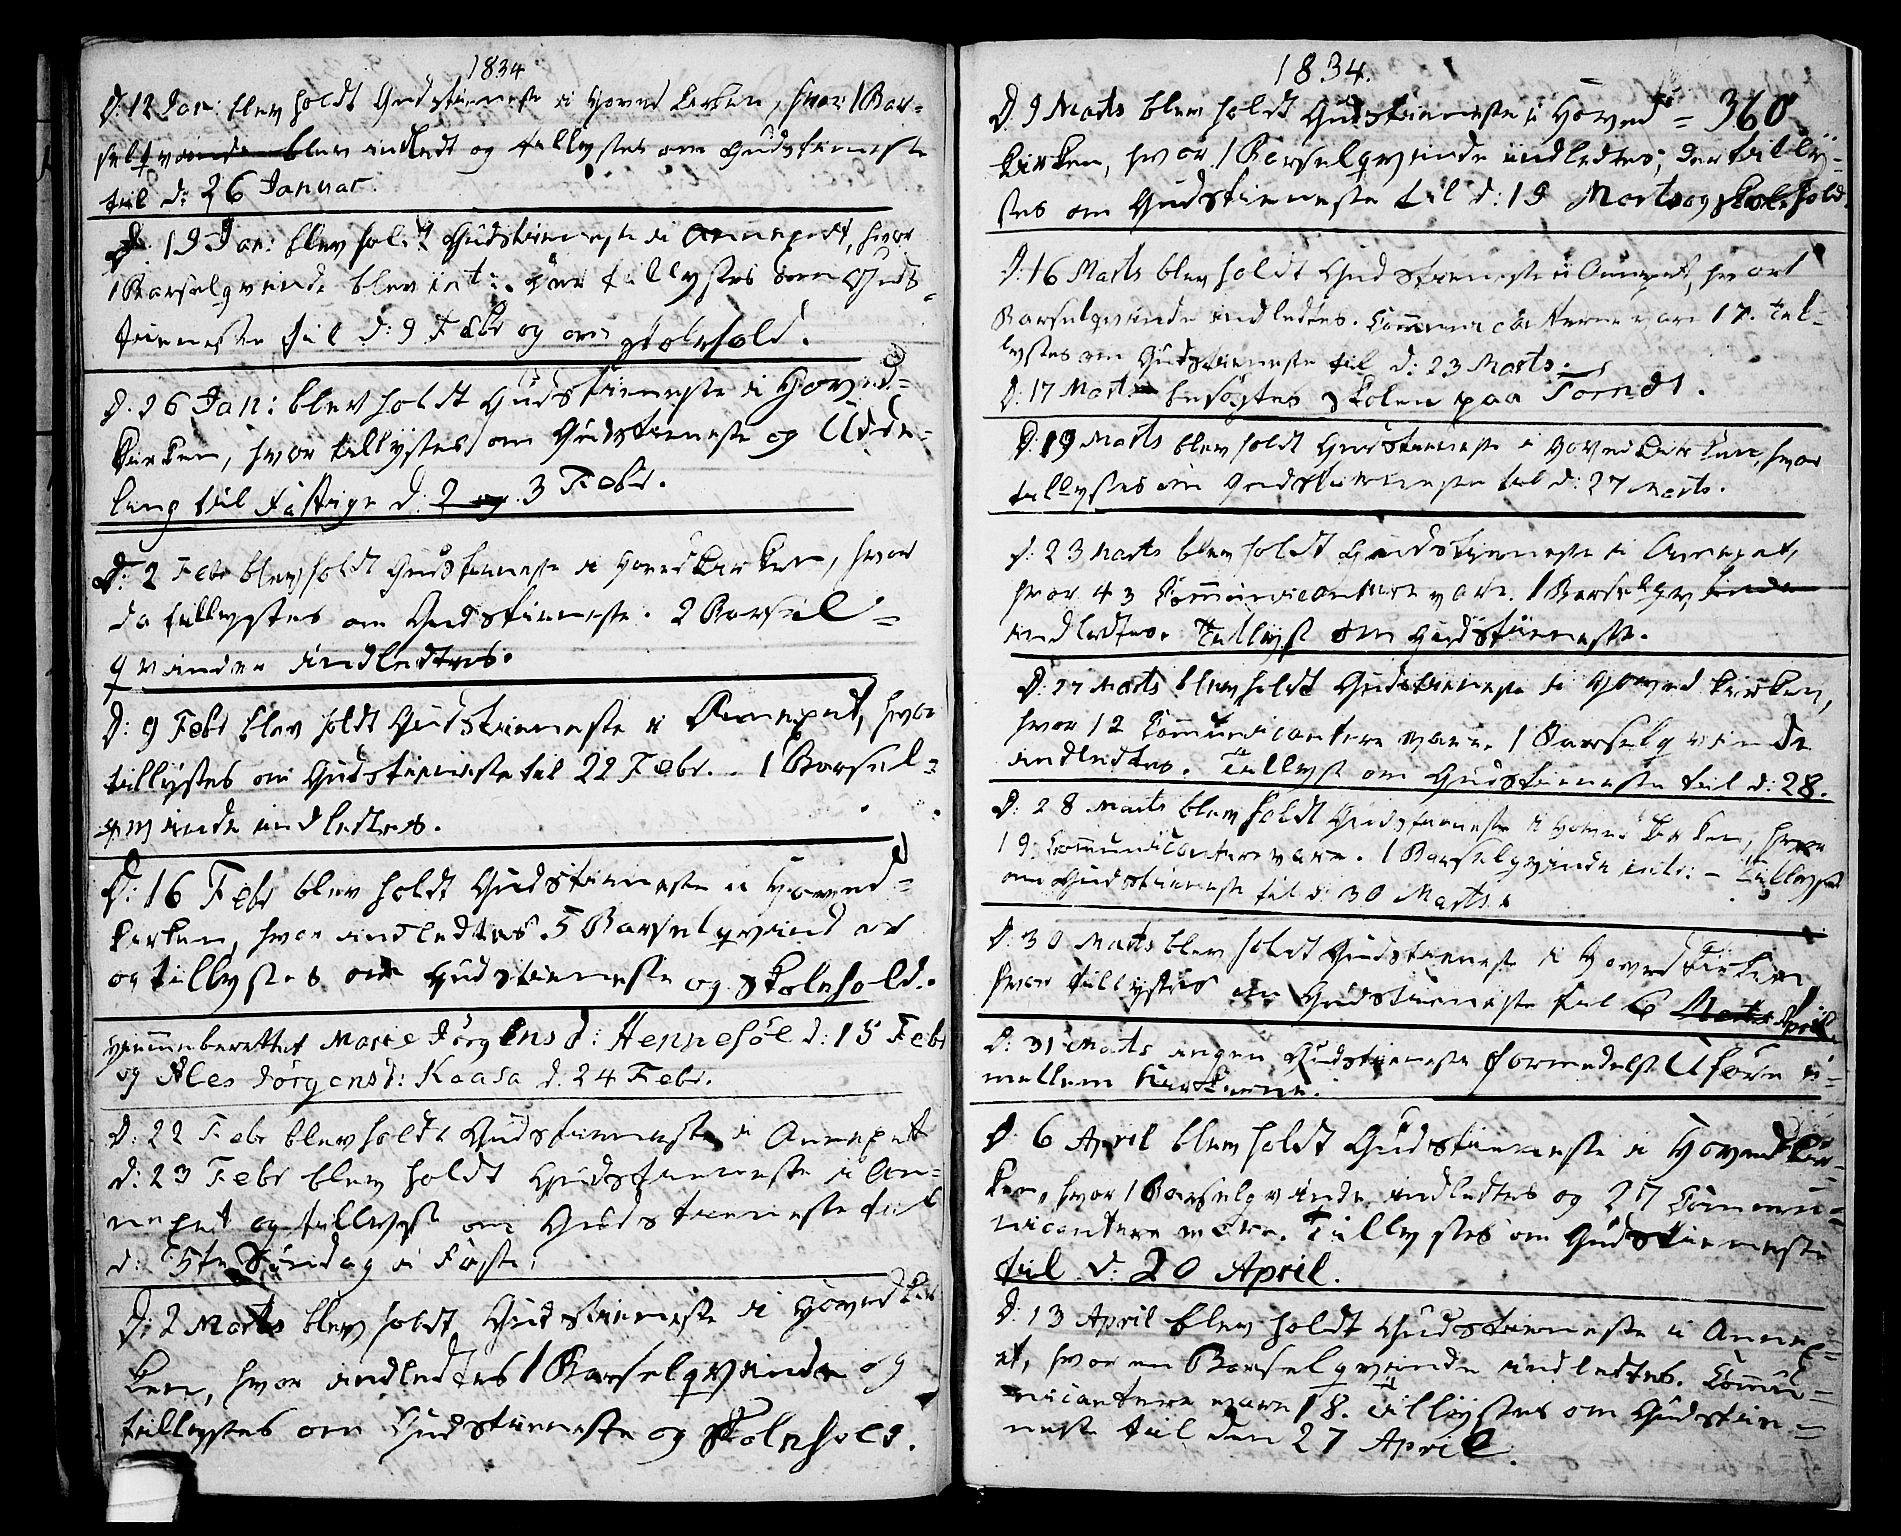 1834
D: 12 Jan: blev holdt Gudstieneste i Hoved kirken, hvor 1 Bar-
selqvinde blev indledt og tillystes om Gudstieneste
til d: 26 Januar.
D. 19 Jan: blev holdt Gudstieneste i Annexet, hvor
1 Barselqvinde blev int:. Her tillystes om Guds-
tieneste til d: 9 Febr og om skolehold.
D. 26 Jan: blev holdt Gudstieneste i Hoved-
kirken, hvor tillystes om Gudstieneste og Udde-
ling til Fattige d: 2 og 3 Febr.
D: 2 Febr blev holdt Gudstieneste i Hovedkirken, hvor
da tillystes om Gudstieneste. 2 Barsel-
qvinder indledtes.
D: 9 Febr blev holdt Gudstieneste i Annexet, hvor
tillystes om Gudstieneste til 22 Febr. 1 Barsel-
qvinde indledtes.
D: 16 Febr blev holdt Gudstieneste i Hoved-
kirken, hvor indledtes 5 Barselqvinder
og tillystes om Gudstieneste og Skolehold.
Hiemmeberettet Marie Jörgensd: Hennesöe d: 15 Febr
og Ales Jörgensd: Kaasa d. 24 Febr.
D: 22 Febr blev holdt Gudstieneste i Annexet
d: 23 Febr blev holdt Gudstieneste i An-
nexet og tillyst om Gudstieneste til
d: 5te Söndag i Faste.
D: 2 Marts blev holdt Gudstieneste i Hovedkir
ken, hvor indledtes 1 Barselqvinde og
tillystes om Gudstieneste og Skolehold.
1834.
D. 9 Marts blev holdt Gudstieneste i Hoved = 360
kirken, hvor 1 Barselqvinde indledtes; der tilly-
stes om Gudstieneste til d: 19 Marts og skolehold.
D: 16 Marts blev holdt Gudstieneste i Annexet, hvor 1
Barselqvinde indledtes. Communicanterne vare 17. Til-
lystes om Gudstieneste til d: 23 Marts.
D: 17 Marts besögtes Skolen paa Torndt.
D: 19 Marts blev holdt Gudstieneste i Hovedkirken, hvor
tillystes om Gudstieneste til d: 27 Marts.
D: 23 Marts blev holdt Gudstieneste i Annexet,
hvor 43 Communicantere vare. 1 Barselqvinde
indledtes. Tillyst om Gudstieneste.
D: 27 Marts blev holdt Gudstieneste i Hoved kirken,
hvor 12 Communicantere vare. 1 Barselqvinde
indledtes. Tillyst om Gudstieneste til d: 28.
D: 28 Marts blev holdt Gudstieneste i Hoved kirken, hvor
19 Communicantere vare. 1 Barselqvinde intr: - Tillyst
om Gudstieneste til d: 30 Marts.
D: 30 Marts blev holdt Gudstieneste i Hovedkirken
hvor tillystes om Gudstieneste til 6 Marts April.
D: 31 Marts ingen Gudstieneste formedelst Uföre i-
mellem kirkerne.
D 6 April blev holdt Gudstieneste i Hovedkir-
ken, hvor 1 Barselqvinde indledtes og 27 Commu-
nicantere vare. Tillystes om Gudstieneste
til d: 20 April.
D: 13 April blev holdt Gudstieneste i Annex-
et, hvor en Barselqvinde indledtes. Commu-
nicantere vare 18. Tillystes om Gudstie-
neste til den 27 April.